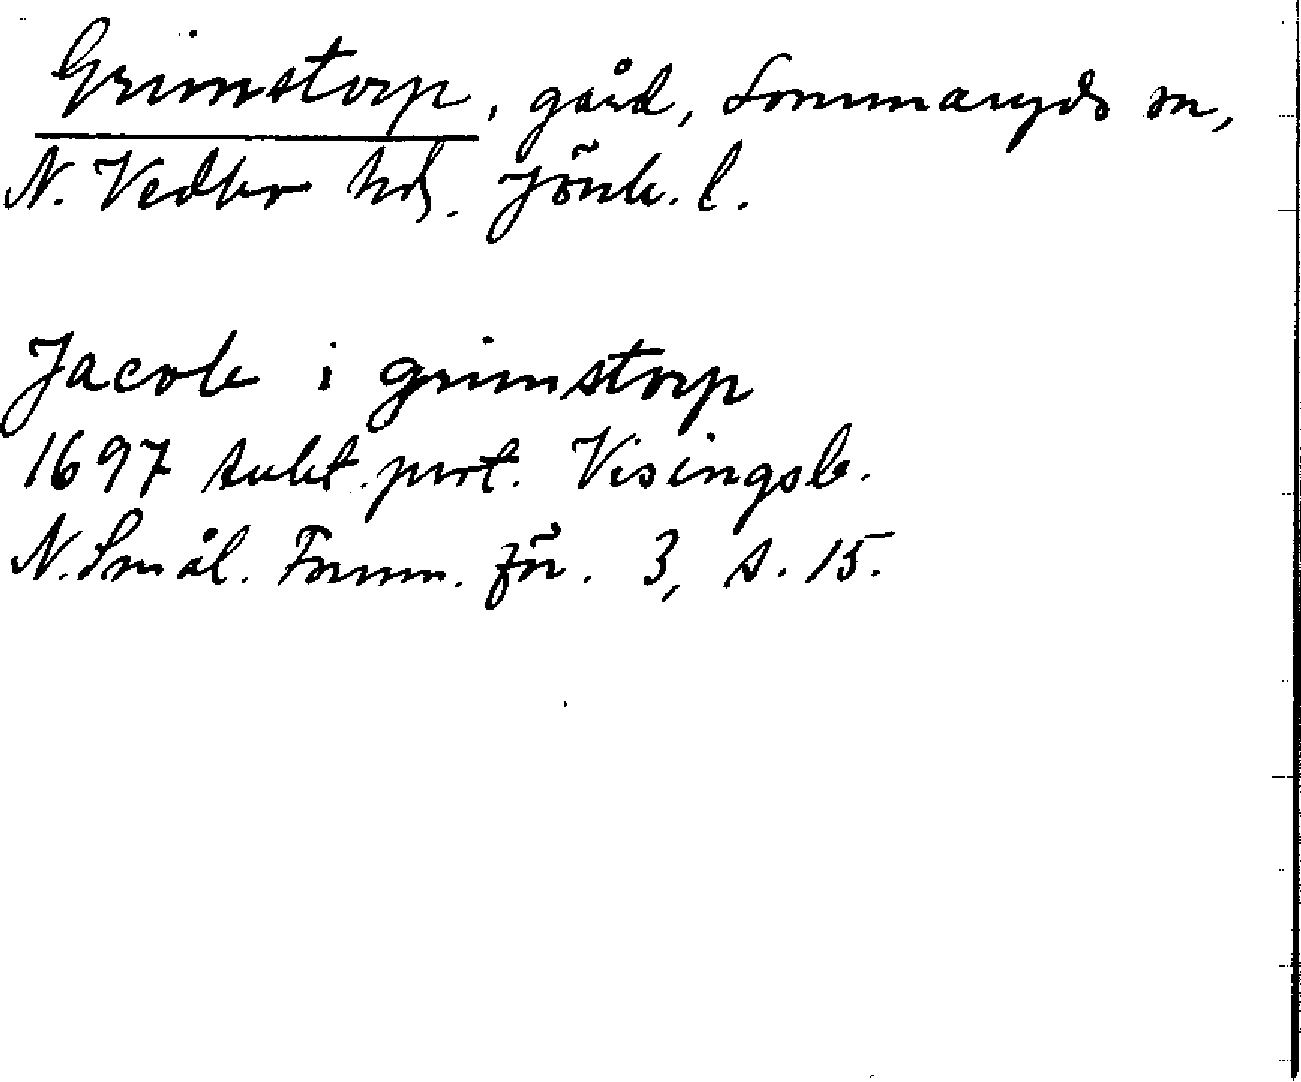 Grimstorp, gård, Lommaryds sn,
N. Vedbo hd. Jönk. l.
Jacob i grimstorp
1697 avkt. prot. Visingsb.
N. Smål. Fornm. för. 3, s. 15.